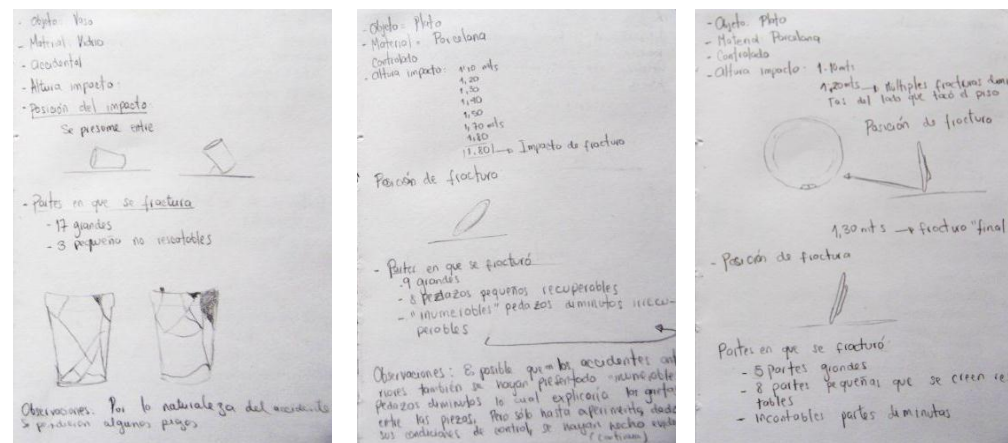 - Objeto: Vaso
- Material: Vidrio
- Accidental
- Altura impacto:
- Posición del impacto:
Se presume entre
- Partes en que se fractura
- 17 grandes
- 3 pequeño no rescatables
Observaciones: Por la naturaleza del accidente
se perdieron algunas piezas
- Objeto: Plato
- Material - Porcelana
Controlado
- Altura impacto: 1,10 mts
1,20
1,30
1,40
1,50
1,70 mts
1,80
1,80 → Impacto de fractura
Posición de fractura
- Partes en que se fracturó
- 9 grandes
- 8 pedazos pequeños recuperables
- "inumerables" pedazos diminutos irrecu-
perables
Observaciones: Es posible que en los accidentes ant
riores también se hayan presentado "inumerable
pedazos diminutos lo cual explicaría las grietas
entre las piezas, Pero sólo hasta
sus condiciones de control, se hayan hecho
(continua)
- Objeto: Plato
- Material: Porcelana
- Controlado
- Altura impacto: 1.10 mts
1,20 mts → Multiples fracturas
tas del lado que tocó el piso
Posición de fractura
1,30 mts → fractura "final
- Posición de fractura
Partes en que se fracturó:
- 5 partes grandes
- 8 partes pequeñas que se creen
tables
- incontables partes diminutas